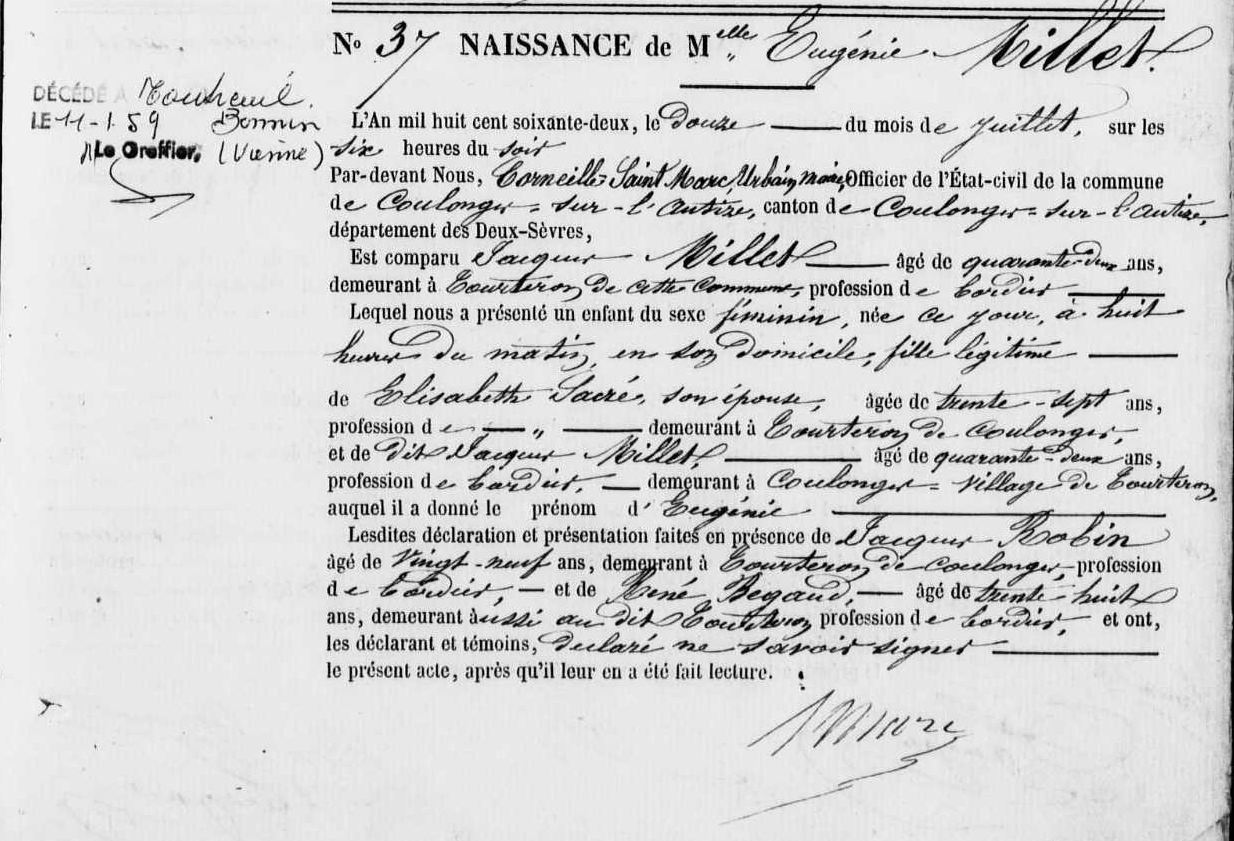 N° 37 NAISSANCE de Mlle Eugénie Millet.
DÉCÉDÉ A Montreuil
LE 11-1 59 Bonnin
Le Greffier, (Vienne)
L'An mil huit cent soixante-deux, le douze du mois de juillet, sur les
six heures du soir
Par-devant Nous, Corneille-Saint Marc, Urbain, maire, Officier de l'État-civil de la commune
de Coulonges-sur-l'autize, canton de Coulonges-sur-l'autize,
département des Deux-Sèvres,
Est comparu Jacques Millet âgé de quarante-deux ans,
demeurant à Tourteron de cette Commune, profession de bordier
Lequel nous a présenté un enfant du sexe féminin, née ce jour, à huit
heures du matin, en son domicile, fille légitime
de Elisabeth Sacré, son épouse, âgée de trente-sept ans,
profession de — „ — demeurant à Tourteron de Coulonges,
et de dit Jacques Millet, âgé de quarante-deux ans,
profession de bordier, — demeurant à Coulonges = village de Tourteron,
auquel il a donné le prénom d'Eugénie
Lesdites déclaration et présentation faites en présence de Jacques Robin
âgé de vingt-neuf ans, demeurant à Tourteron de Coulonges, profession
de bordier, — et de René Begaud, — âgé de trente-huit
ans, demeurant aussi au dit Tourteron profession de bordier, et ont,
les déclarant et témoins, déclaré ne savoir signer
le présent acte, après qu'il leur en a été fait lecture.